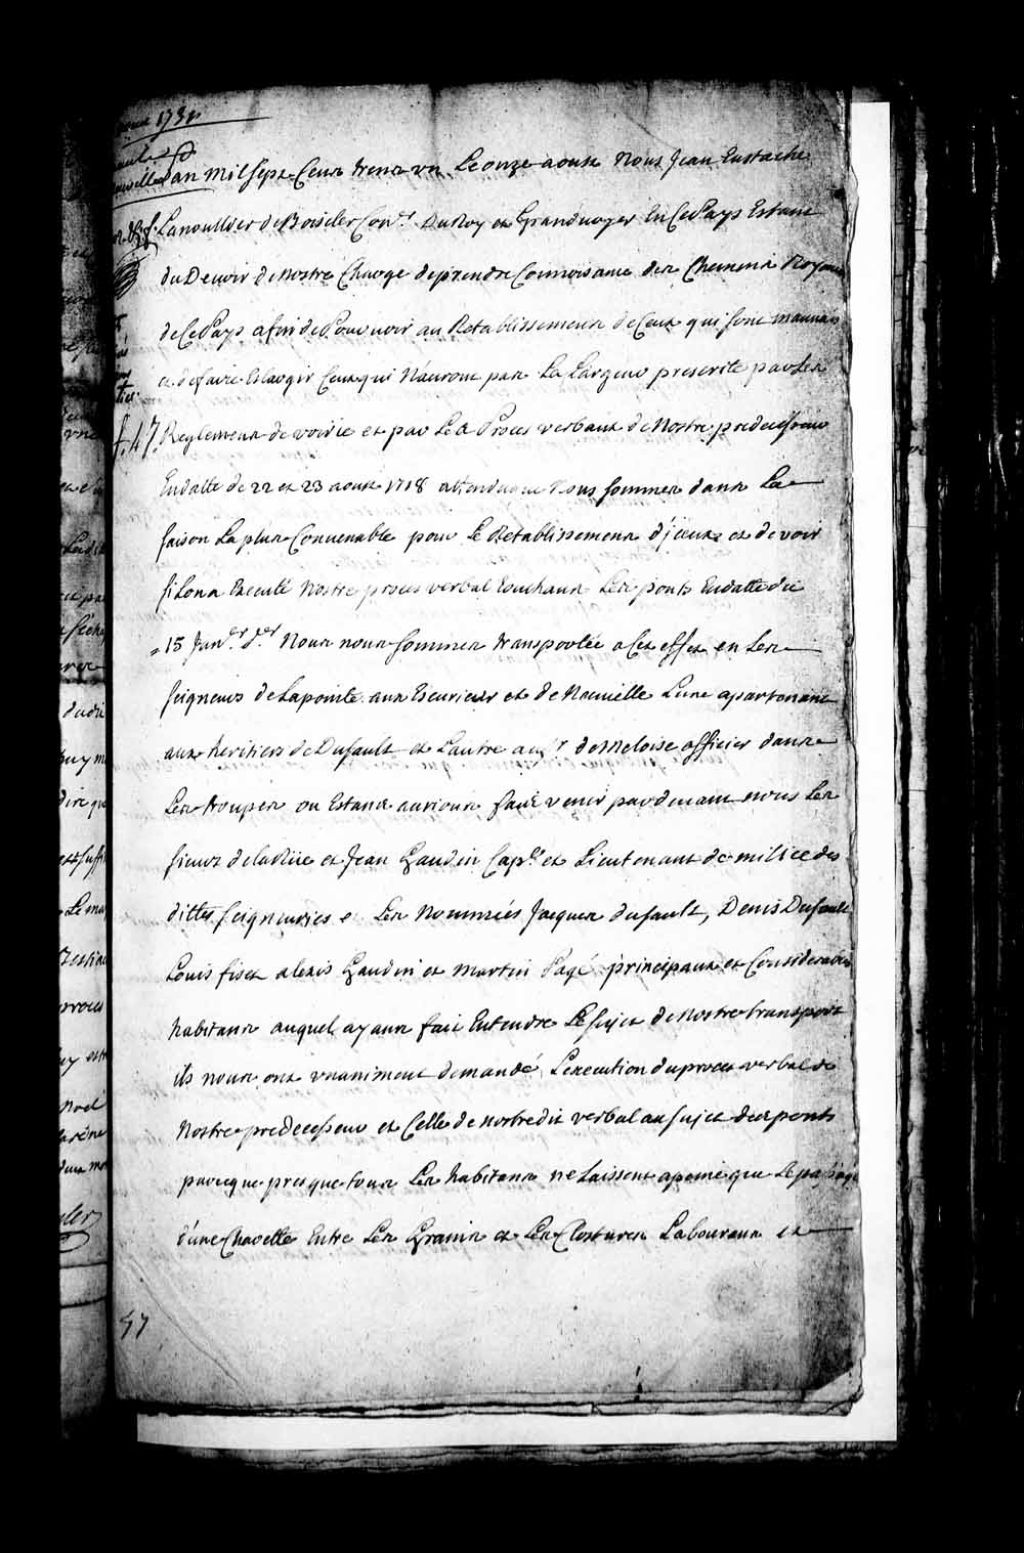 1731
Lan Mil Sept Cens trente un Le onze aoust Nous Jean Eustache
Lanoullier de Boisclerc Con.er Du Roy et Grandvoyer En Ce Pays Estant
du Devoir de Nostre Charge de prendre Connoissance des Chemins Royaux
de Ce Pays afin de Pourvoir au Retablissement de Ceux qui sont mauvais
et de faire Eslargir Ceux qui N'auront pas La Largeur prescrite par Les
f. 47. Reglements de voirie et par Les Proces verbaux de Nostre predecesseur
En datte de 22 et 23 aoust 1718 attendu que Nous sommes dans La
saison La plus Convenable pour Le Retablissement d'jceux et de voir
si Lon a Executé Nostre proces verbal touchant Les ponts En datte du
15 Jan.er d.er Nous nous sommes transportée a Cet effet en Les
seigneurs de Lapointe aux Escurieux et de Neuville Lune apartenant
aux heritiers de Dufault et Lautre au S.r de Meloise officier dans
Les troupes ou Estant aurions fait venir par devant nous Les
sieurs delaRüe et Jean Gaudin Cap.e et Lieutenant de milice des
dittes seigneuries et Les Nommées Jacques dufault, Denis Dufault
Louis fiset alexis Gaudin et martin Pagé principaux et Considerables
habitans auquel ayant fait Entendre Le sujet de Nostre transport
ils nous ont unaniment demandé Lexecution du proces verbal de
Nostre predecesseur et Celle de nostredit verbal au sujet des ponts
parceque presque tous Les habitans ne Laissent apeine que Le passage
d'une Charette Entre Les Grains et Les Clostures Labourant et
47